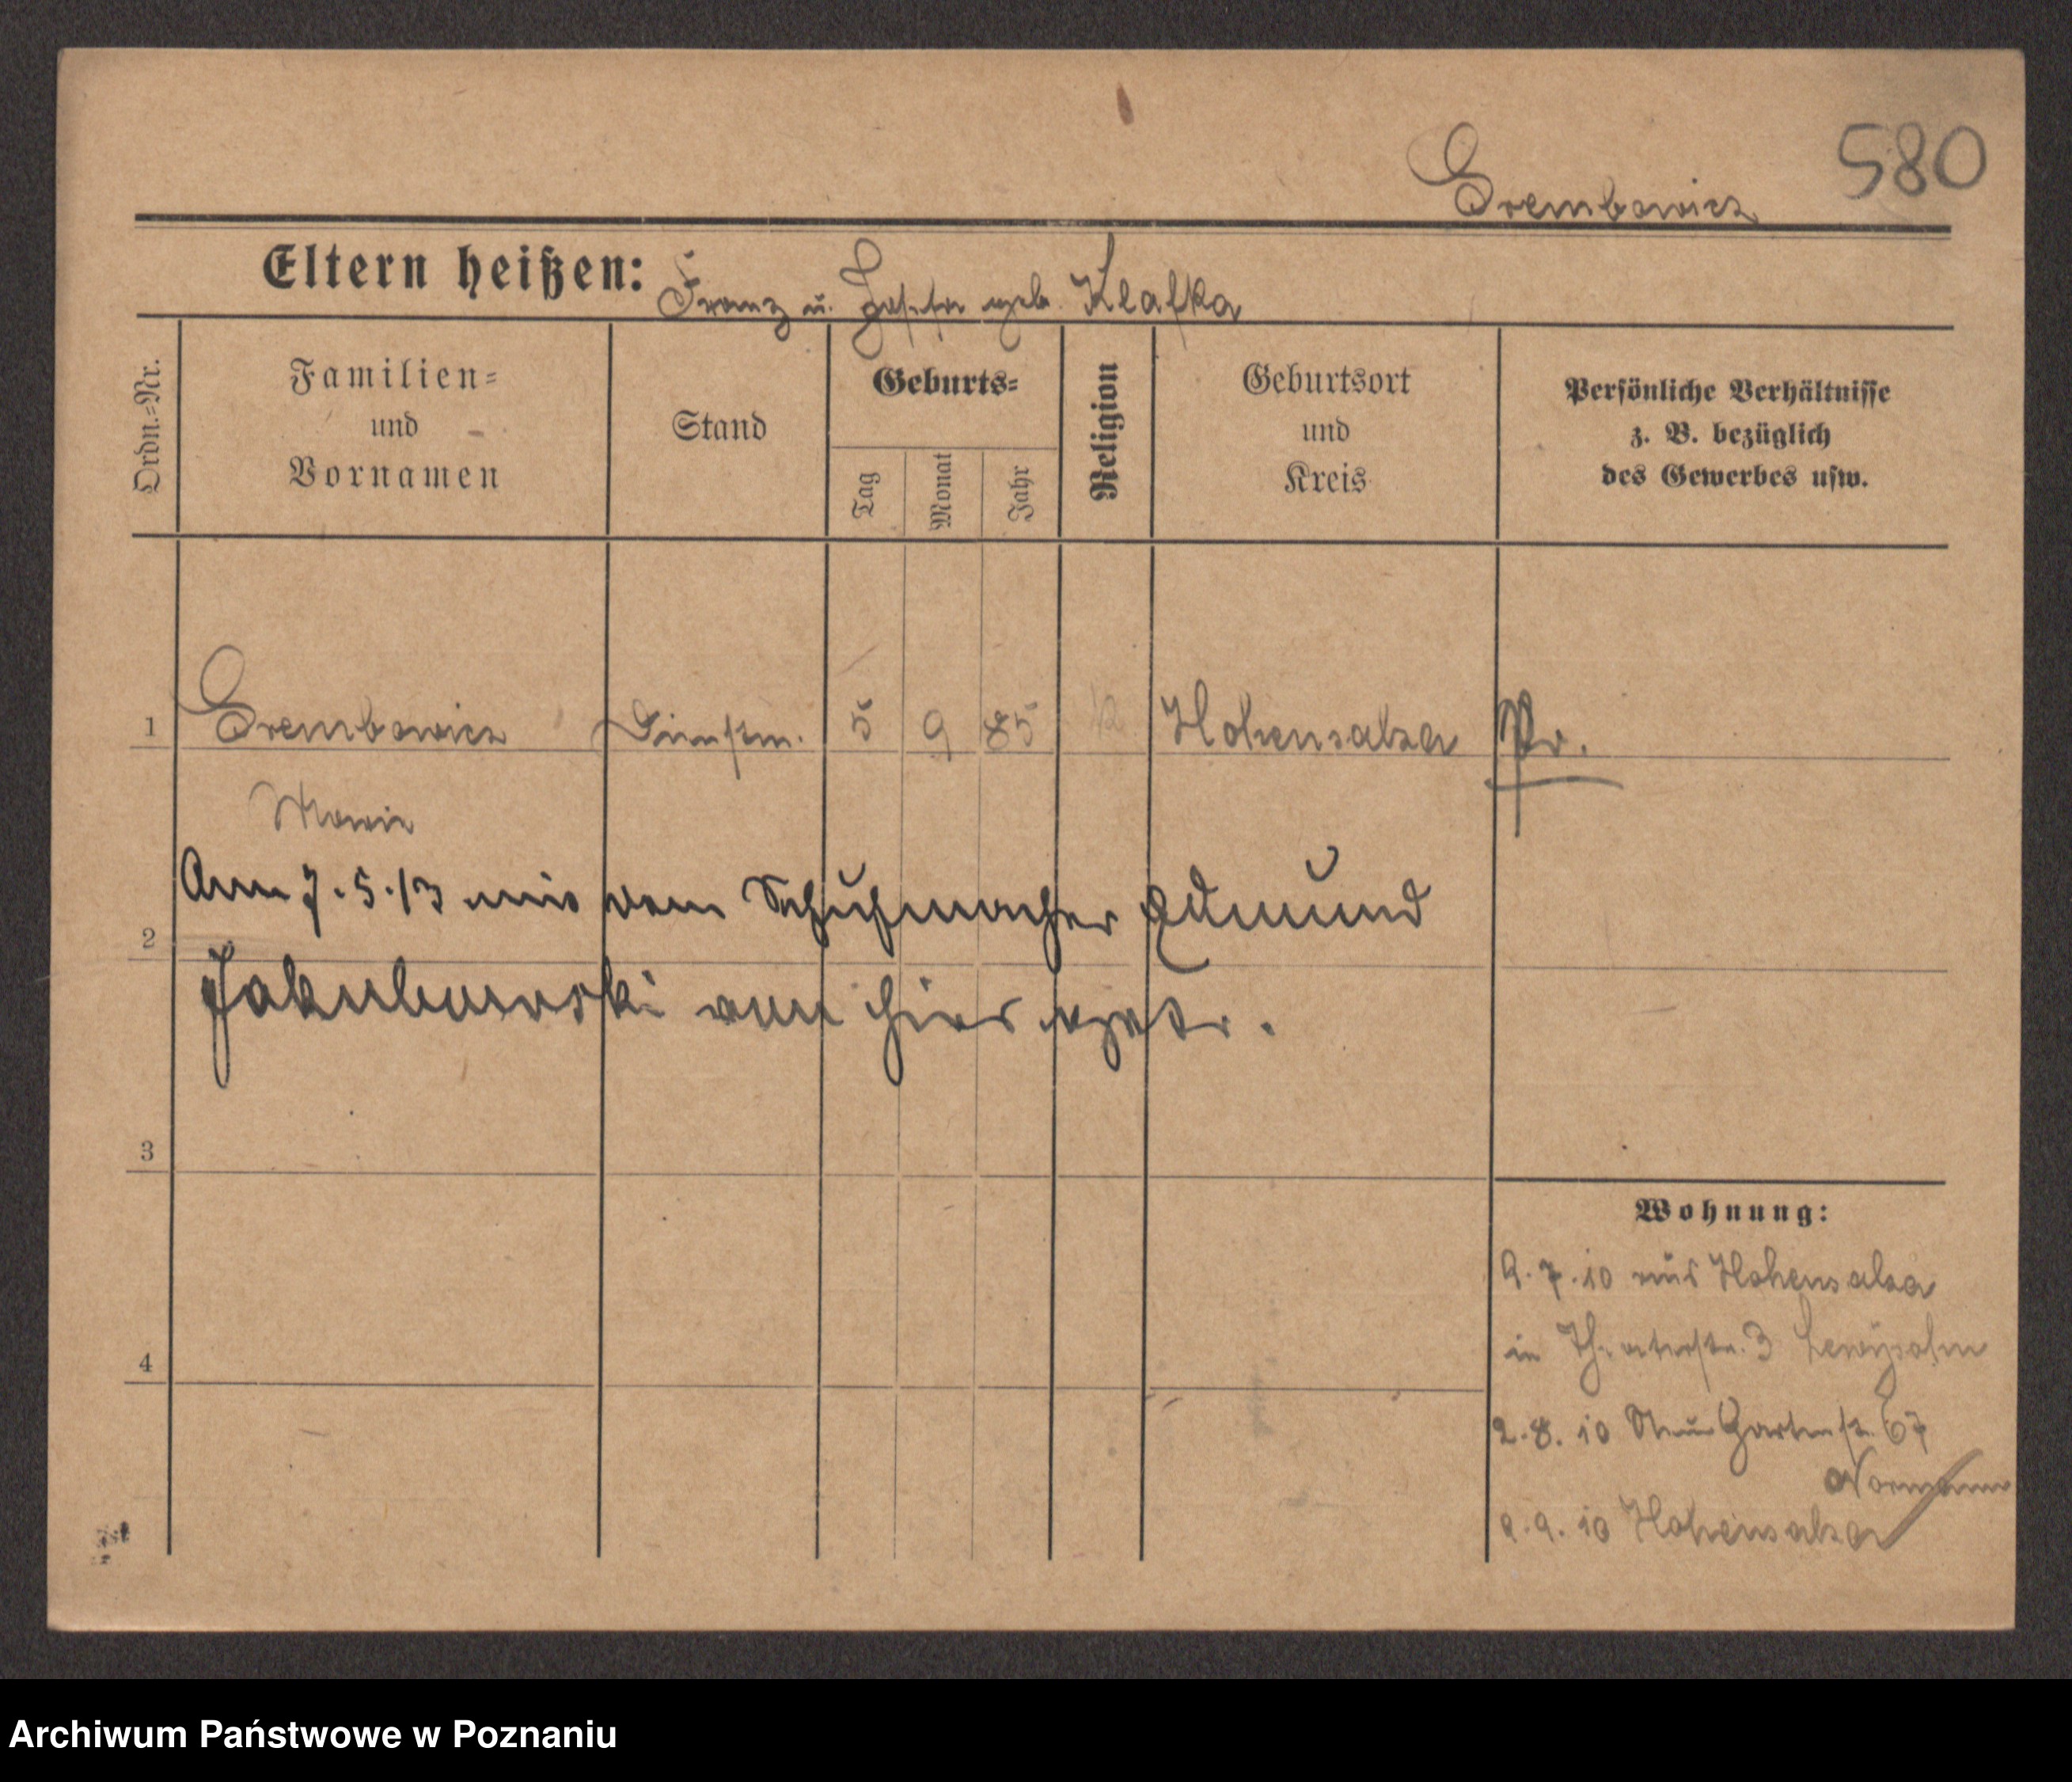 580
Grembowicz
Eltern heißen: Franz u. Josefa geb. Klafka
Ordn.-Nr.
Familien-
und
Vornamen
Stand
Geburts-
Tag
Monat
Jahr
Religion
Geburtsort
und
Kreis
Persönliche Verhältnisse
z. B. bezüglich
des Gewerbes usw.
1 Grembowicz Dienstm. 5 9 85 k Hohensalza Pr.
Marie
Am 7.5.13 mit dem Schuhmacher Edmund
2
Jakubowski von hier getr.
3
Wohnung:
9.7.10 aus Hohensalza
in Theaterstr. 3 Lewysohn
4
2.8.10 Neue Gartenstr. 67
Normann
9.9.10 Hohensalza
Archiwum Państwowe w Poznaniu